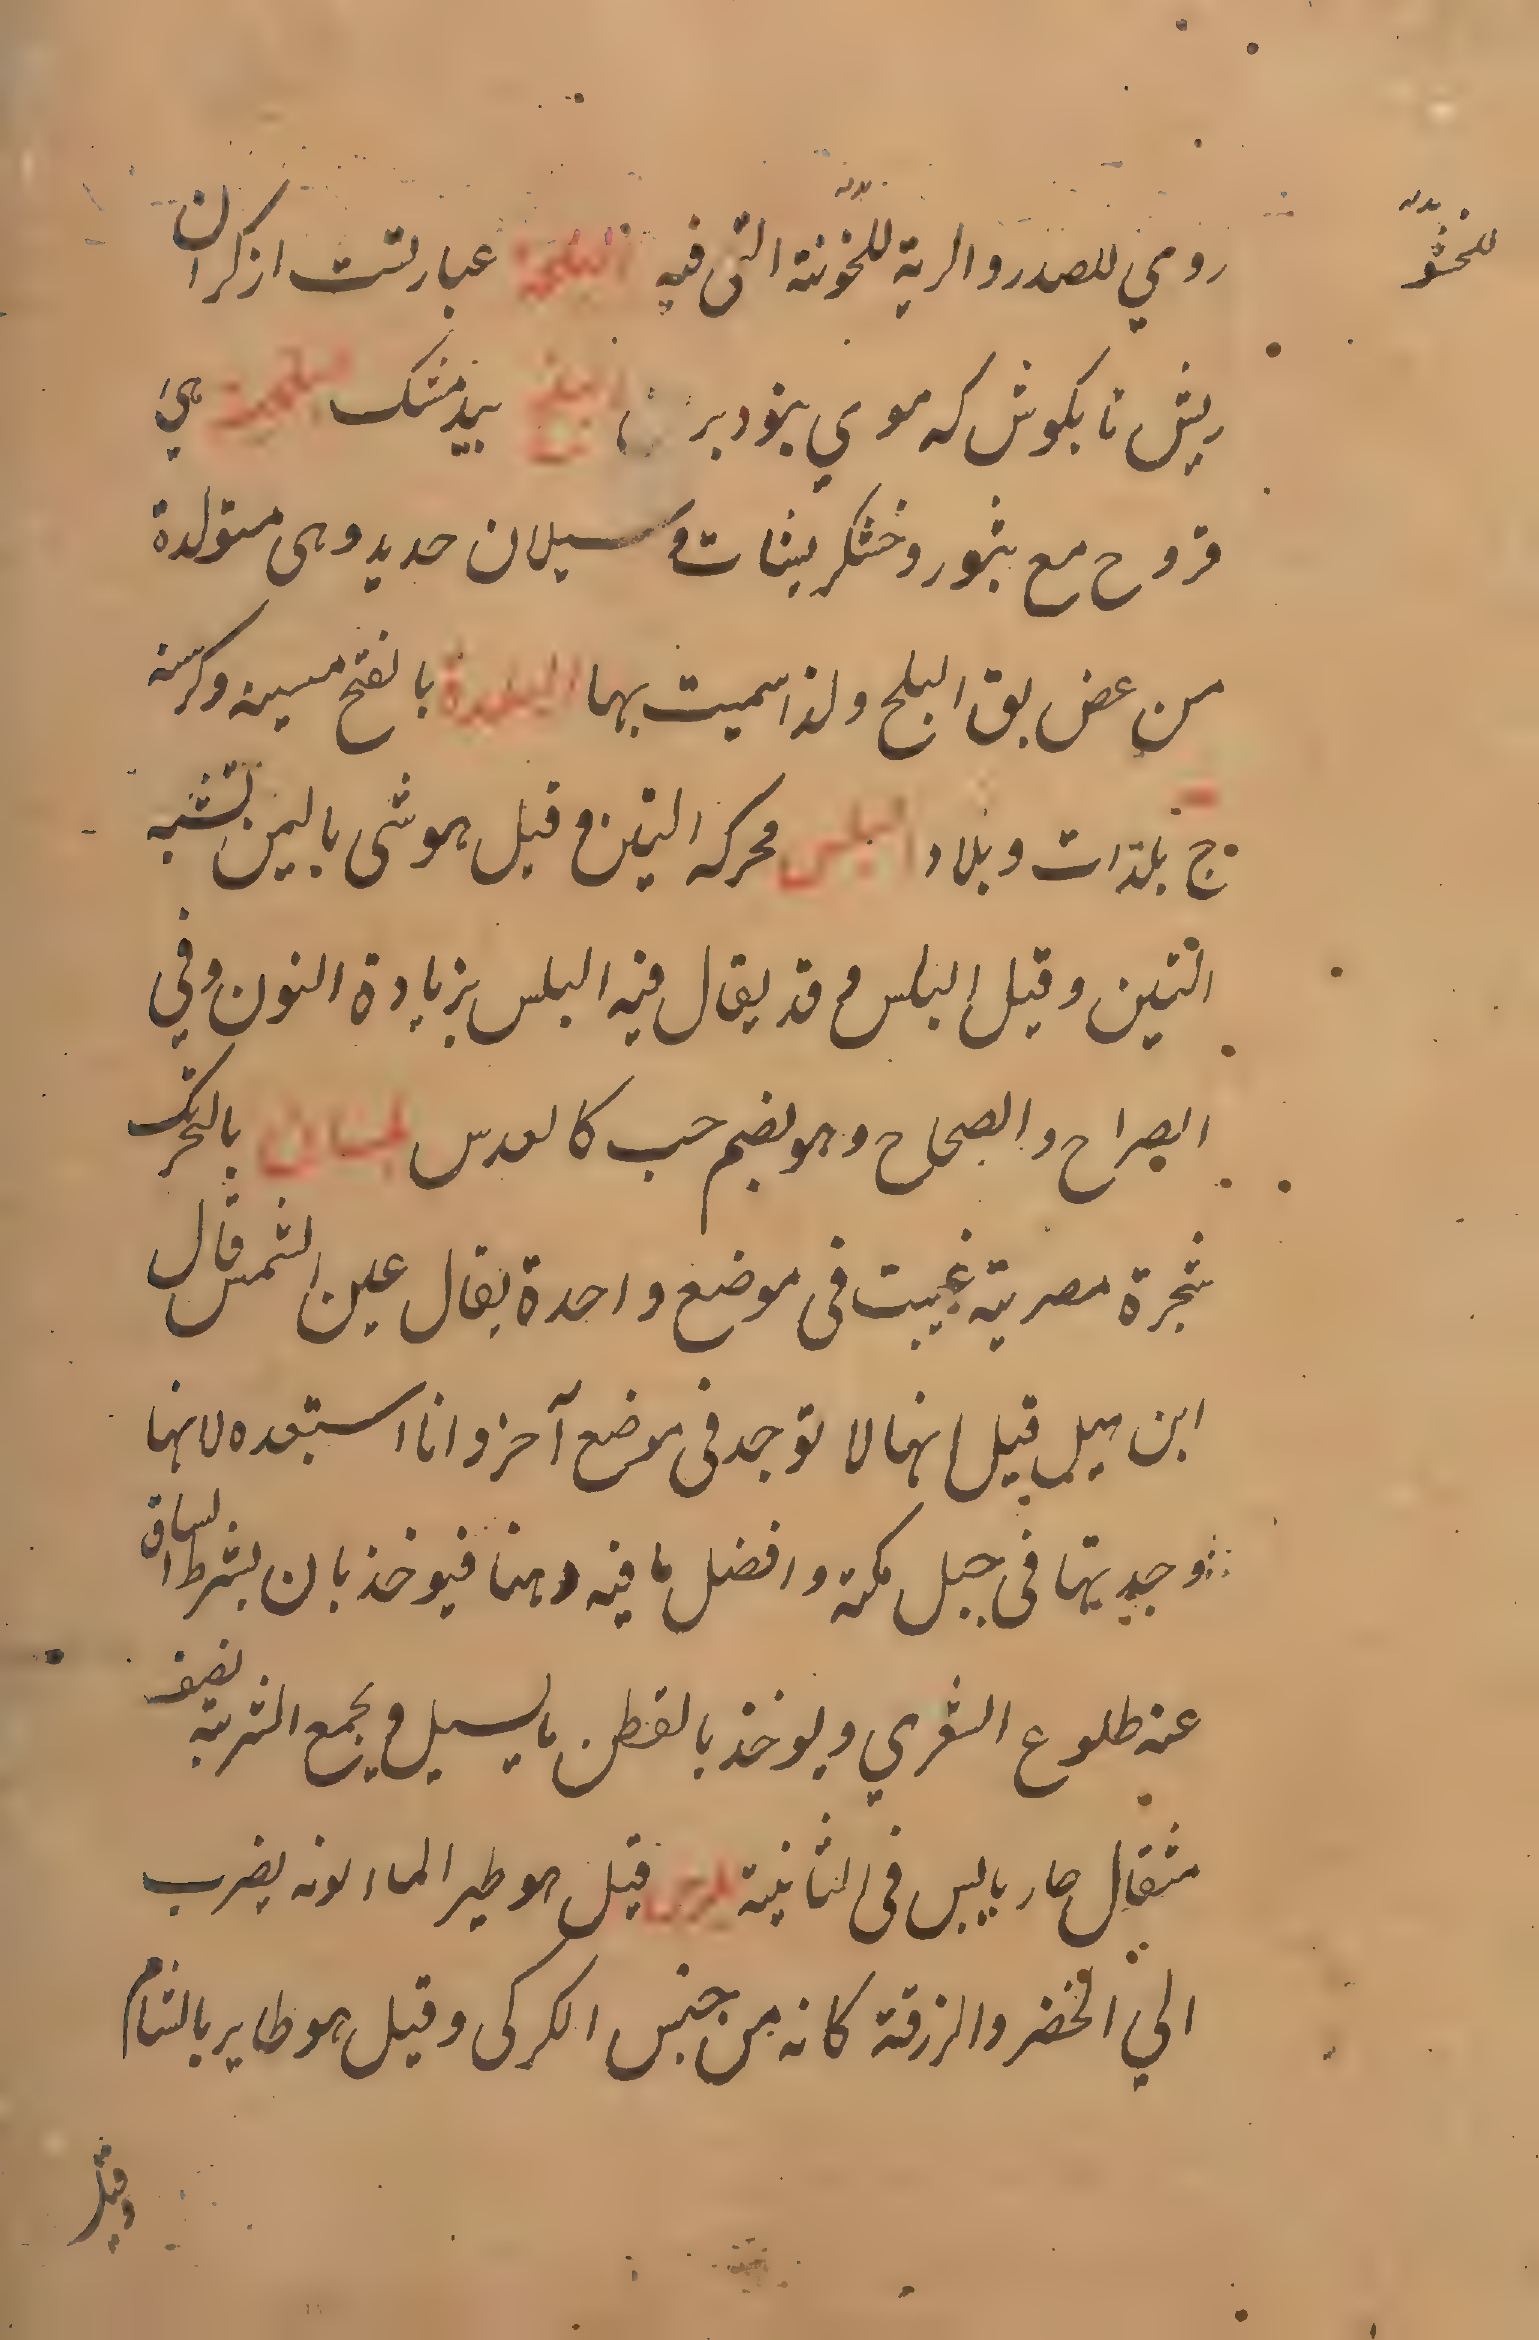 رومي للصدر والرية للخونة التى فيه البلجة عبارتست از كران
ريش تا بكوش كه موي بنود بر البلخ بيد مشك بلخية هي
قروح مع بثور وخشكريشات وسيلان حديد وهى متولدة
من عض بق البلخ ولذا سميت بها البلدة بالفتح مسينه وكرسنه
ج بلدات وبلاد البلس محركه التين وقيل هو شى باليمن تشبه
التين وقيل البلس وقد يقال فيه البلس بزيادة النون وفي
الصراح والصحاح وهو بضم حب كالعدس بلسان بالتحريك
شجرة مصرية غيبت فى موضع واحدة يقال عين الشمس قال
ابن هبل قيل انها لا توجد فى موضع آخر وانا استبعده لانها
وجديتها فى جبل مكة وافضل ما فيه دهنا فيوخذ بان بشرط الساق
عند طلوع الشعري ويوخذ بالقطن ما يسيل ويجمع الشربة نصف
مثقال حار يابس فى الثانية قيل هو طير الماء لونه يضرب
الي الخضر والزرقة كانه من جنس الكركى وقيل هو طاير بالشام
وقيل